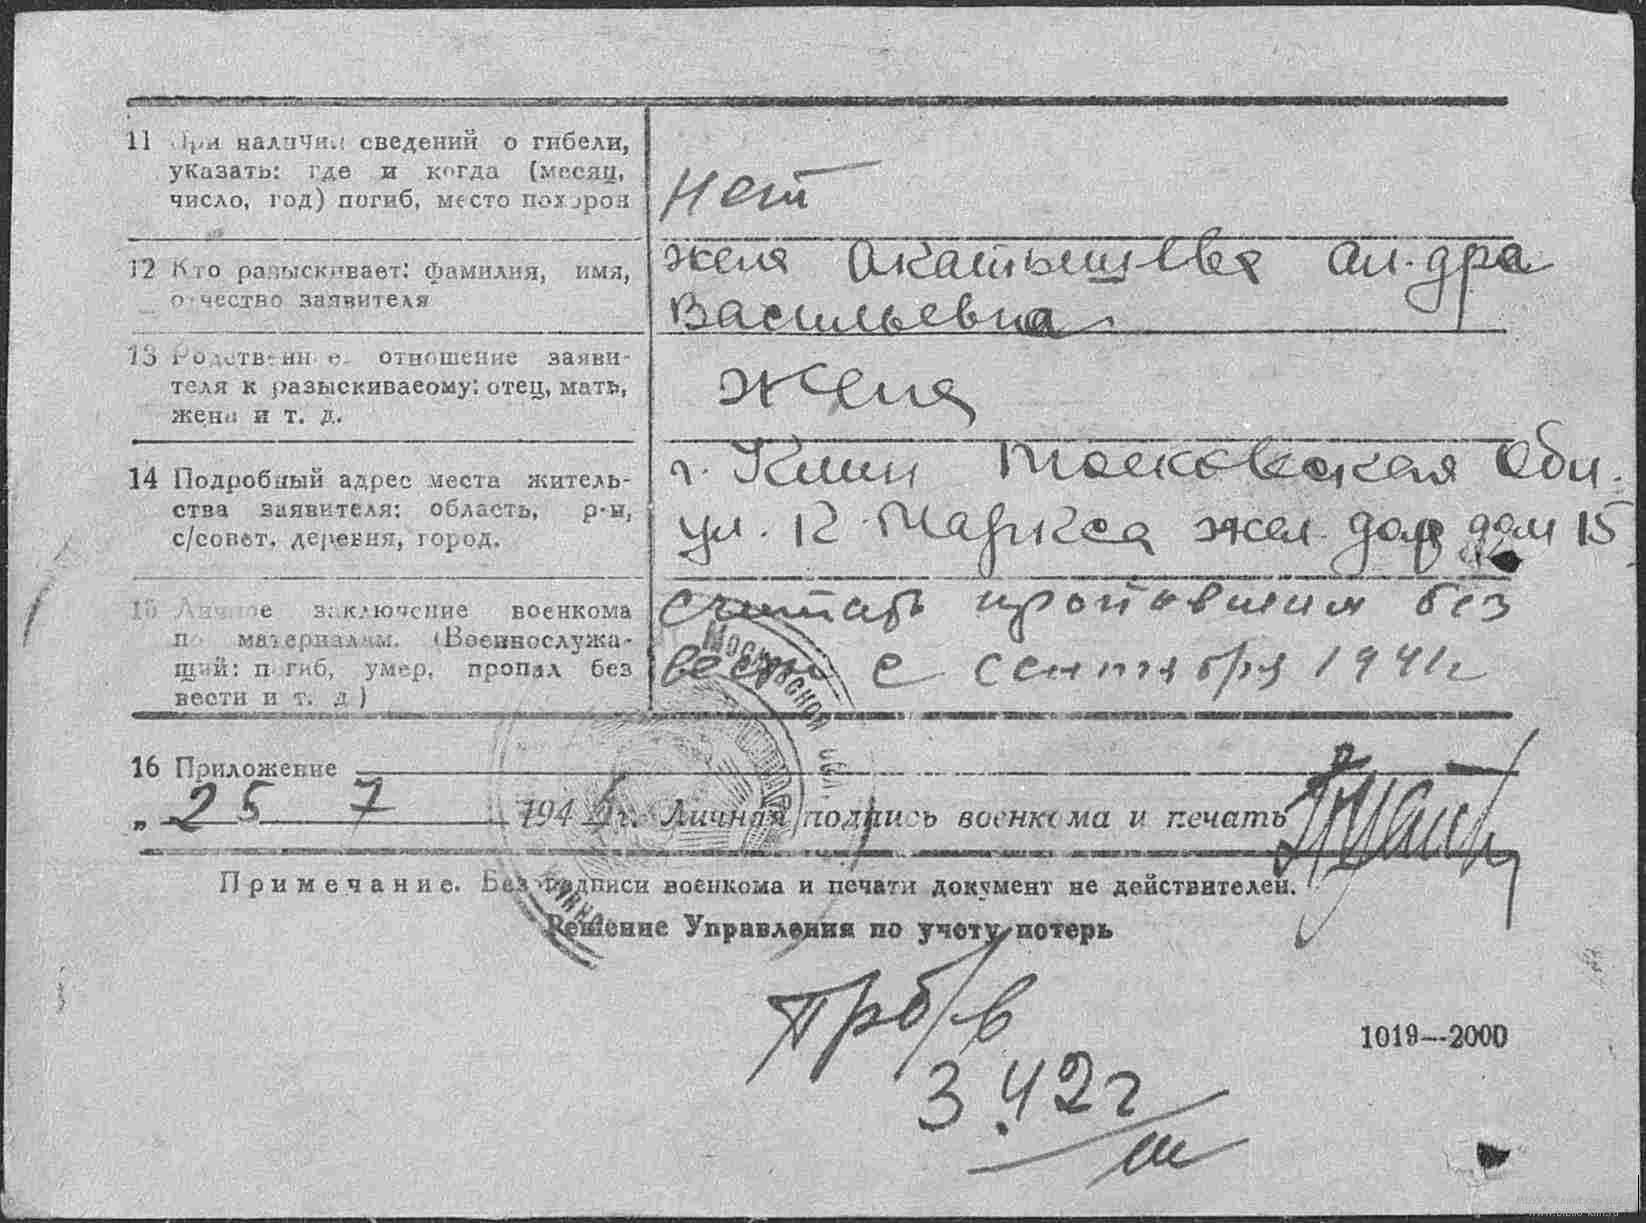 11 При наличии сведений о гибели,
указать: где и когда (месяц,
число, год) погиб, место похорон
нет
12 Кто разыскивает: фамилия, имя,
отчество заявителя
жена Акатышева Ал-дра
Васильевна
13 Родственное отношение заяви-
теля к разыскиваемому: отец, мать,
жена и т. д.
жена
14 Подробный адрес места житель-
ства заявителя: область, р-н,
с/совет, деревня, город.
г. Клин Московская обл.
ул. К. Маркса жел. дор дом 15
15 Личное заключение военкома
по материалам. (Военнослужа-
щий: погиб, умер, пропал без
вести и т. д.)
считать пропавшим без
вести с сентября 1941г
Московской обл
16 Приложение
„ 25 7 194 г. Личная подпись военкома и печать
Примечание. Без подписи военкома и печати документ не действителен.
Решение Управления по учету потерь
Прб/в
3.42г
1019—2000